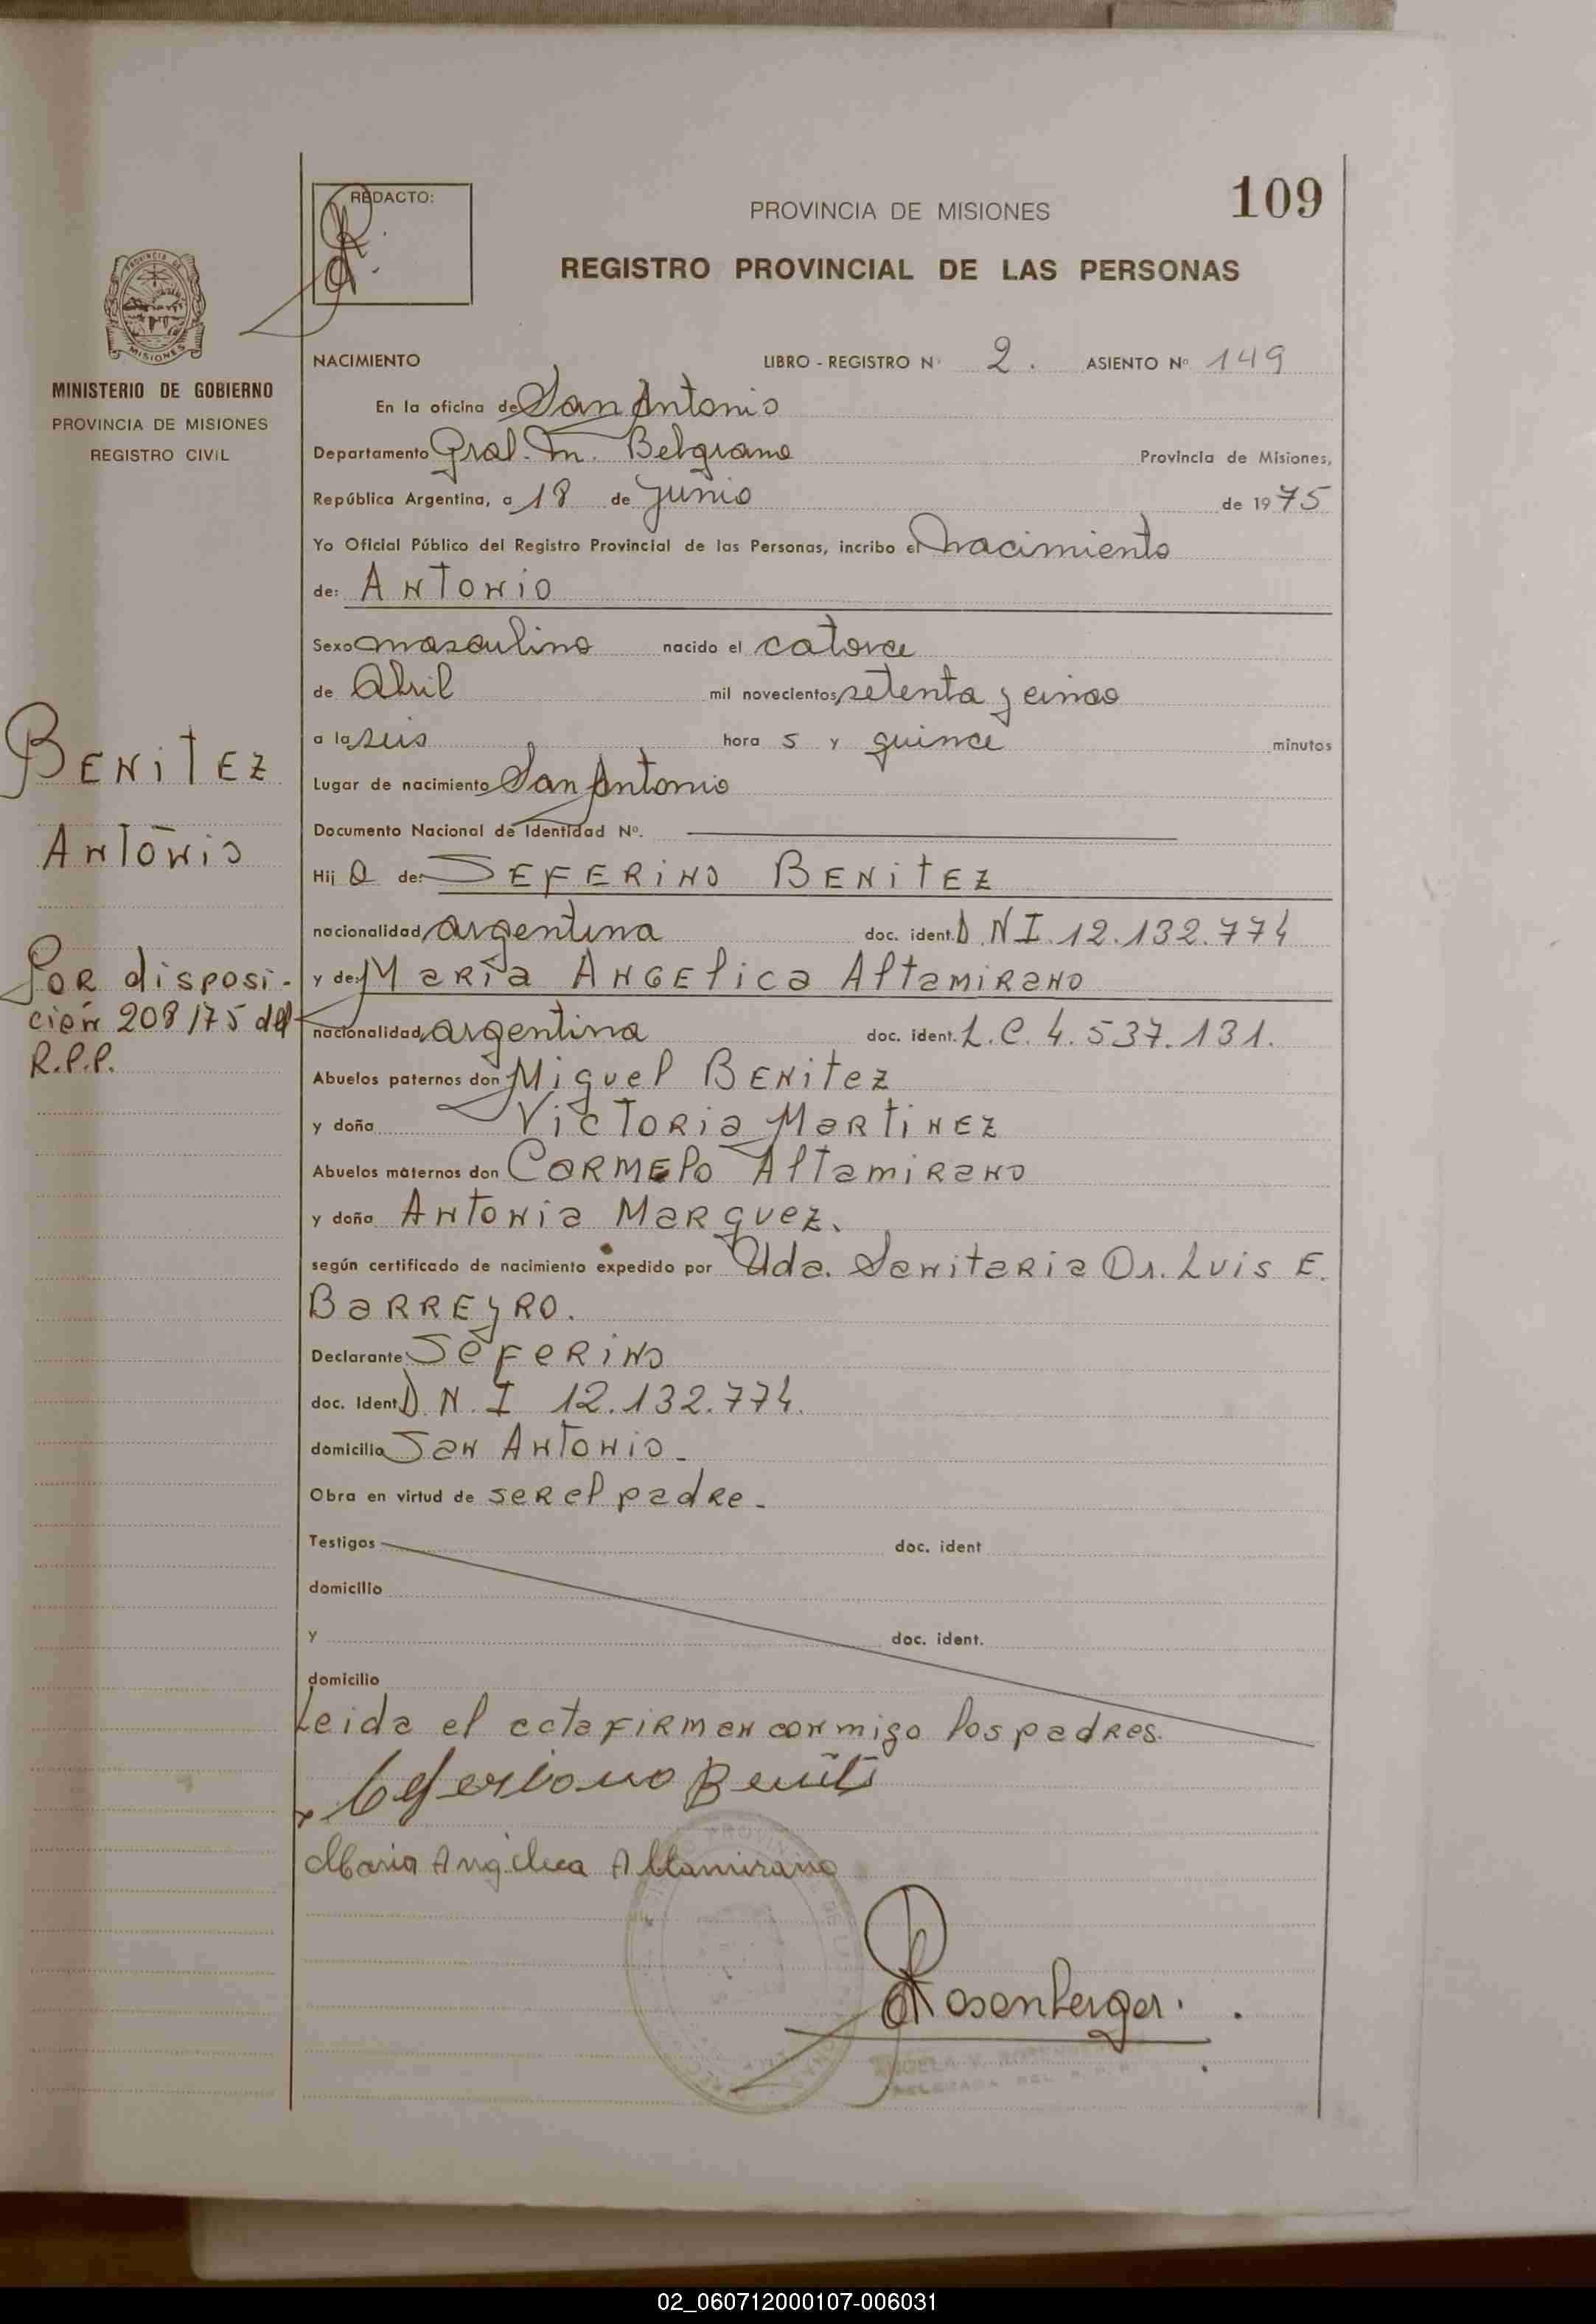 REDACTO:
PROVINCIA DE MISIONES
109
REGISTRO PROVINCIAL DE LAS PERSONAS
PROVINCIA DE
MISIONES
MINISTERIO DE GOBIERNO
PROVINCIA DE MISIONES
REGISTRO CIVIL
NACIMIENTO LIBRO - REGISTRO Nº 2. ASIENTO Nº 149
En la oficina de San Antonio
Departamento Gral. M. Belgrano Provincia de Misiones,
República Argentina, a 18 de Junio de 1975
Yo Oficial Público del Registro Provincial de las Personas, incribo el nacimiento
de: Antonio
Sexo masculino nacido el catorce
de Abril mil novecientos setenta y cinco
a la seis hora s y quince minutos
Benitez
Lugar de nacimiento San Antonio
Documento Nacional de Identidad Nº.
Antonio
Hij o de: Seferino Benitez
nacionalidad argentina doc. ident. D N I. 12.132.774
Por disposi-
y de: Maria Angelica Altamirano
ción 208/75 del
nacionalidad argentina doc. ident. L.C. 4.537.131.
R.P.P.
Abuelos paternos don Miguel Benitez
y doña Victoria Martinez
Abuelos maternos don Carmelo Altamirano
y doña Antonia Marquez.
según certificado de nacimiento expedido por Uda. Sanitaria Dr. Luis E.
Barreyro.
Declarante Seferino
doc. Ident D.N.I 12.132.774.
domicilio San Antonio.
Obra en virtud de ser el padre.
Testigos doc. ident
domicilio
y doc. ident.
domicilio
Leida el acta firman conmigo los padres.
Maria Angelica Altamirano
Rosenberger.
02_060712000107-006031